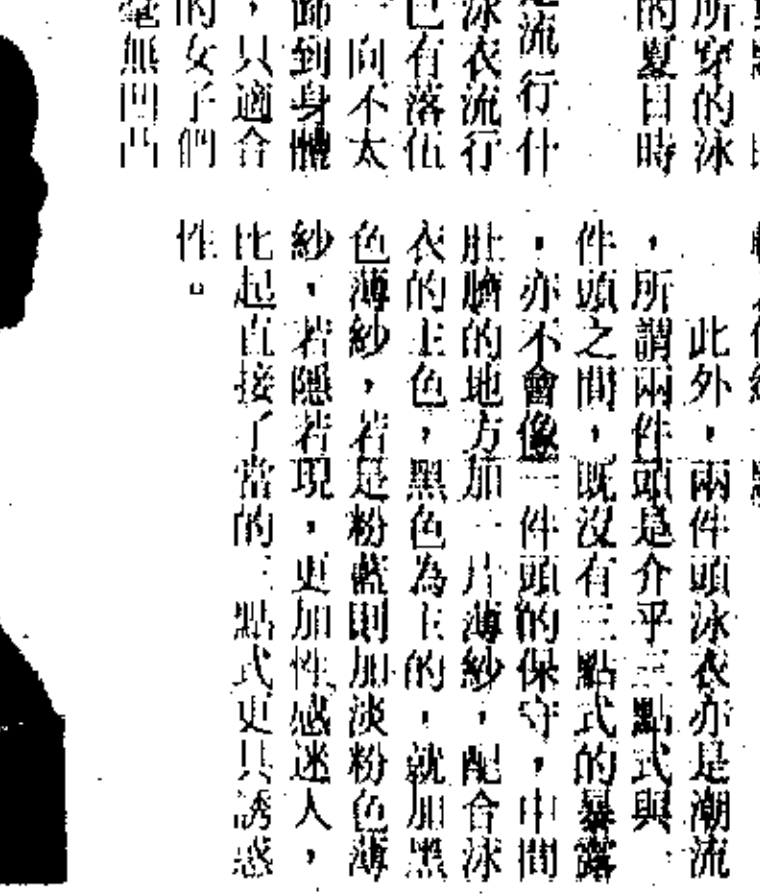 所穿的泳
的夏日時
流行什
泳衣流行
已有落伍
向不太
部到身體
，只適合
的女子們
毫無凹凸
此外，兩件頭泳衣亦是潮流
，所謂兩件頭是介乎三點式與一
件頭之間，既沒有三點式的暴露
，亦不會像一件頭的保守，中間
肚臍的地方加一片薄紗，配合泳
衣的主色，黑色為主的，就加黑
色薄紗，若是粉藍則加淡粉色薄
紗，若隱若現，更加性感迷人，
比起直接了當的三點式更具誘惑
性。